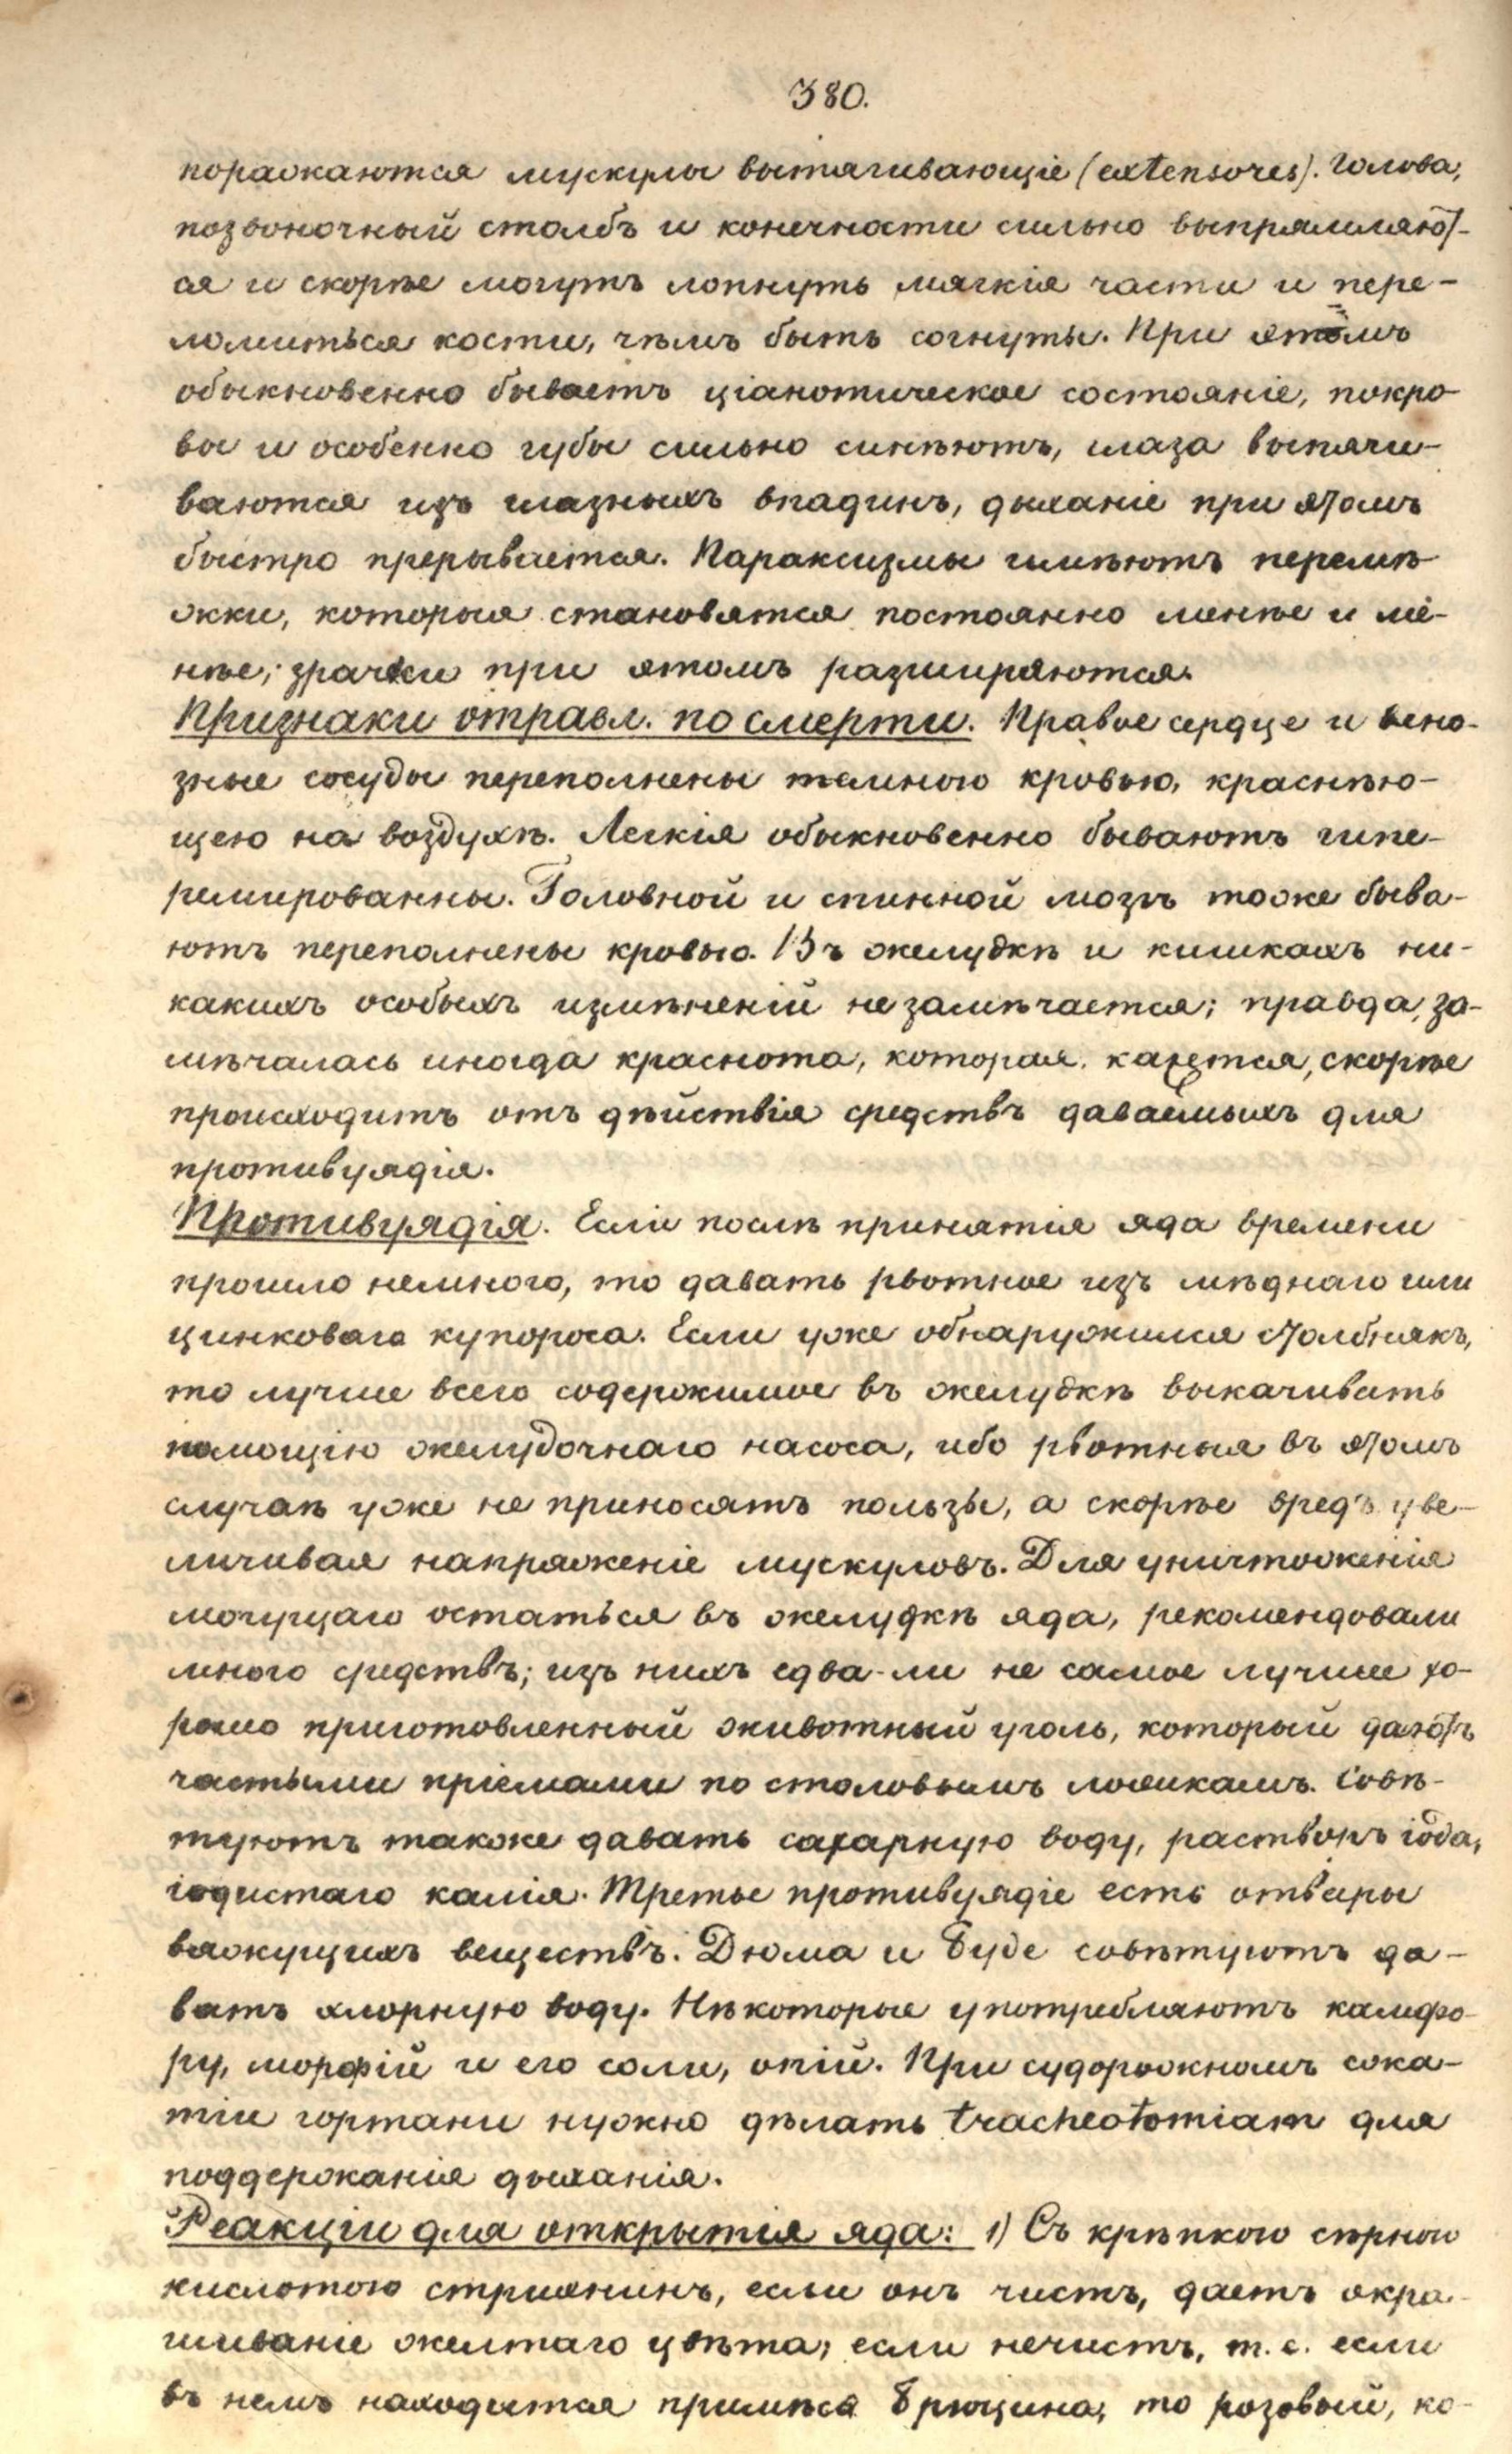 380.
поражаются мускулы вытягивающіе (extensores). Голова,
позвоночный столбъ и конечности сильно выпрямляют-
ся и скорѣе могутъ лопнуть мягкія части и пере-
ломиться кости, чѣмъ быть согнуты. При этомъ
обыкновенно бываетъ ціанотическое состояніе, покро-
вы и особенно губы сильно синѣютъ, глаза выпячи-
ваются изъ глазныхъ впадинъ, дыханіе при этомъ
быстро прерывается. Параксизмы имѣютъ перемѣ-
жки, которыя становятся постоянно менѣе и ме-
нѣе; зрачки при этомъ разширяются.
Признаки отравл. по смерти. Правое сердце и вено-
зные сосуды переполнены темною кровью, краснѣю-
щею на воздухѣ. Легкія обыкновенно бываютъ гипе-
ремированны. Головной и спинной мозгъ тоже быва-
ютъ переполнены кровью. Въ желудкѣ и кишкахъ ни-
какихъ особыхъ измѣненій не замѣчается; правда, за-
мѣчалась иногда краснота, которая, кажется, скорѣе
происходитъ отъ дѣйствія средствъ даваемыхъ для
противуядія.
Противуядія. Если послѣ принятія яда времени
прошло немного, то давать рвотное изъ мѣднаго или
цинковаго купороса. Если уже обнаружился столбнякъ,
то лучше всего содержимое въ желудкѣ выкачивать
помощію желудочнаго насоса, ибо рвотныя въ этомъ
случаѣ уже не приносятъ пользы, а скорѣе вредъ уве-
личивая напряженіе мускуловъ. Для уничтоженія
могущаго остаться въ желудкѣ яда, рекомендовали
много средствъ; изъ нихъ едва-ли не самое лучшее хо-
рошо приготовленный животный уголь, который даютъ
частыми пріемами по столовымъ ложкамъ. Совѣ-
туютъ также давать сахарную воду, растворъ іода,
іодистаго калія. Третье противуядіе есть отвары
вяжущихъ веществъ. Дюма и Буде совѣтуютъ да-
вать хлорную воду. Нѣкоторые употребляютъ камфо-
ру, морфій и его соли, опій. При судорожномъ сжа-
тіи гортани нужно дѣлать tracheotomiam для
поддержанія дыханія.
Реакціи для открытія яда: 1) Съ крѣпкою сѣрною
кислотою стрихнинъ, если онъ чистъ, даетъ окра-
шиваніе желтаго цвѣта; если нечистъ, т. е. если
въ немъ находится примѣсь Бруцина, то розовый, ко-